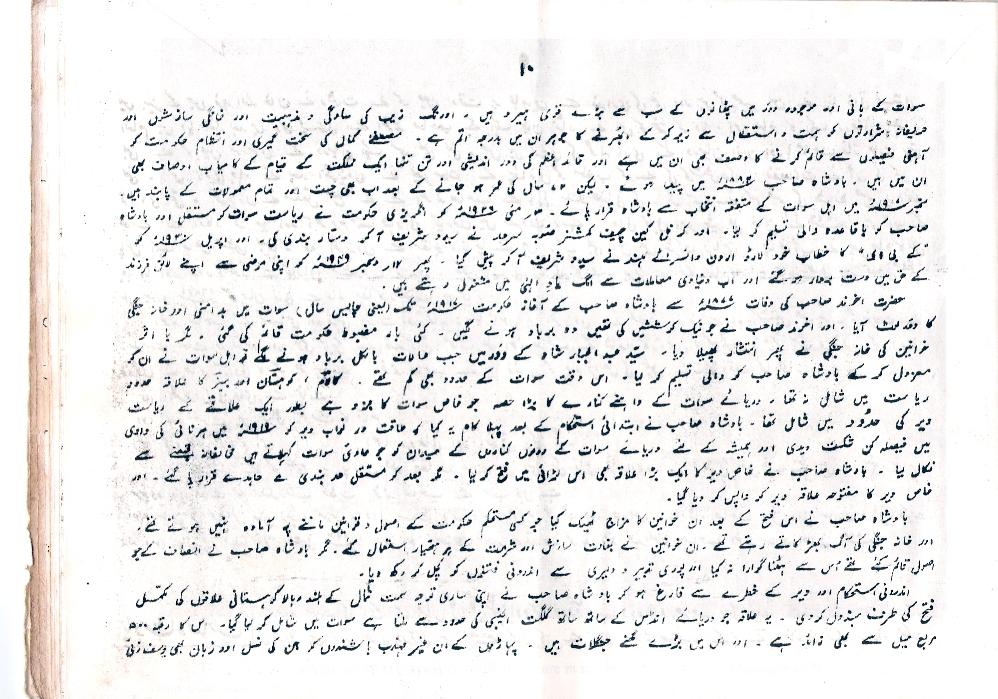 ۱۰
سوات کے بانی اور موجودہ دور میں پٹھانوں کے سب سے بڑے قومی ہیرو ہیں ۔ اورنگ زیب کی سادگی و مذہبیت اور خانگی سازشوں اور
حریفانہ شرارتوں کو ہمت و استقلال سے زیر کر کے ابھرنے کا جوہر ان میں بدرجہ اتم ہے ۔ مصطفےٰ کمال کی سخت گیری اور انتظام حکومت کو
آہنی فیصلوں سے قائم کرنے کا وصف بھی ان میں ہے اور قائد اعظم کی دور اندیشی اور تن تنہا ایک مملکت کے قیام کے کامیاب اوصاف بھی
ان میں ہیں ۔ بادشاہ صاحب میں پیدا ہوئے ۔ لیکن سال کی عمر ہو جانے کے بعد اب بھی چست اور تمام معمولات کے پابند ہیں۔
ستمبر میں اہل سوات کے متفقہ انتخاب سے بادشاہ قرار پائے ۔ مئی ۱۹۲۶ء کو انگریزی حکومت نے ریاست سوات کو مستقل اور بادشاہ
صاحب کو باقاعدہ والی تسلیم کر لیا ۔ اور کرنل کین چیف کمشنر صوبہ سرحد نے سیدو شریف آ کر دستار بندی کی ۔ اور اپریل ۱۹۳۰ء کو
"کے بی ای" کا خطاب خود لارڈ ارون وائسرائے ہند نے سیدو شریف آ کر پیش کیا ۔ پھر ۱۲ دسمبر ۱۹۴۹ء کو اپنی مرضی سے اپنے لائق فرزند
کے حق میں دست بردار ہو گئے اور اب دنیاوی معاملات سے الگ یاد الٰہی میں مشغول رہتے ہیں ۔
حضرت اخوند صاحب کی وفات ۱۸۷۷ء سے بادشاہ صاحب کے آغاز حکومت ۱۹۱۷ء تک (یعنی چالیس سال) سوات میں بد امنی اور خانہ جنگی
کا دور لوٹ آیا ۔ اور اخوند صاحب نے جو نیک کوششیں کی تھیں وہ برباد ہونے لگیں ۔ کئی بار مضبوط حکومت قائم کی گئی ۔ مگر با اثر
خوانین کی خانہ جنگی نے پھر انتشار پھیلا دیا ۔ سید عبد الجبار شاہ کے دور میں جب حالات بالکل برباد ہونے لگے تو اہل سوات نے ان کو
معزول کر کے بادشاہ صاحب کو والی تسلیم کر لیا ۔ اس وقت سوات کے حدود بھی کم تھے ۔ کالام ، کوہستان اور بنیر کا علاقہ حدود
ریاست میں شامل نہ تھا ۔ دریائے سوات کے داہنے کنارے کا بڑا حصہ جو خاص سوات کا جزو ہے بطور ایک علاقے کے ریاست
دیر کی حدود میں شامل تھا ۔ بادشاہ صاحب نے ابتدائی استحکام کے بعد پہلا کام یہ کیا کہ طاقت ور نواب دیر کو ۱۹۱۹ء میں ہرنائی کی وادی
میں فیصلہ کن شکست دیدی اور ہمیشہ کے لئے دریائے سوات کے دونوں کناروں کے میدان کو جو وادی سوات کہلاتے ہیں مخالفانہ قبضے سے
نکال لیا ۔ بادشاہ صاحب نے خاص دیر کا ایک بڑا علاقہ بھی اس لڑائی میں فتح کر لیا ۔ مگر بعد کو مستقل حد بندی کے معاہدے قرار پا گئے ۔ اور
خاص دیر کا مفتوحہ علاقہ دیر کو واپس کر دیا گیا ۔
بادشاہ صاحب نے اس فتح کے بعد ان خوانین کا مزاج ٹھیک کیا جو کسی مستحکم حکومت کے اصول و قوانین ماننے پر آمادہ نہیں ہوتے تھے ۔
اور خانہ جنگی کی آگ بھڑکاتے رہتے تھے ۔ ان خوانین نے بغاوت سازش اور شرارت کے ہر ہتھیار استعمال کئے ۔ مگر بادشاہ صاحب نے انصاف کے جو
اصول قائم کئے تھے اس سے ہٹنا گوارا نہ کیا اور پوری تدبیر و دلیری سے اندرونی فتنوں کو کچل کر رکھ دیا ۔
اندرونی استحکام اور دیر کے خطرے سے فارغ ہو کر بادشاہ صاحب نے اپنی ساری توجہ سمت شمال کے بلند و بالا کوہستانی علاقوں کی مکمل
فتح کی طرف مبذول کر دی ۔ یہ علاقہ جو دریائے انڈس کے ساتھ ساتھ گلگت ایجنسی کی حدود سے ملتا ہے سوات میں شامل کر لیا گیا ۔ اس کا رقبہ ۵۰۰
مربع میل سے بھی زائد ہے ۔ اور اس میں بڑے گھنے جنگلات ہیں ۔ پہاڑوں کے ان غیر مہذب باشندوں کو جن کی نسل اور زبان بھی یوسف زئی